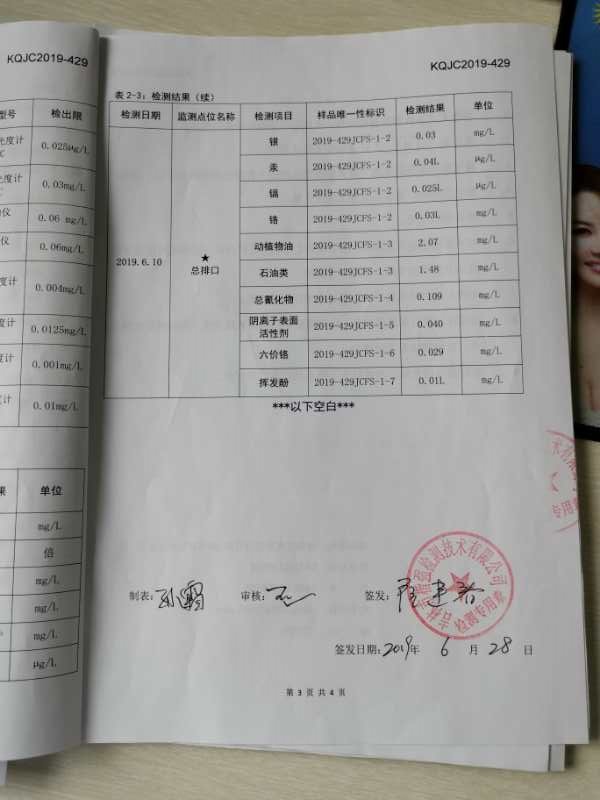 KQJC2019-429
型号 检出限
光度计 0.025μg/L
光度计 0.03mg/L
0.06 mg/L
0.06mg/L
度计 0.004mg/L
度计 0.0125mg/L
度计 0.001mg/L
度计 0.01mg/L
果 单位
mg/L
倍
mg/L
mg/L
mg/L
μg/L
KQJC2019-429
表 2-3：检测结果（续）
检测日期 监测点位名称 检测项目 样品唯一性标识 检测结果 单位
2019.6.10 ★
总排口
银 2019-429JCFS-1-2 0.03 mg/L
汞 2019-429JCFS-1-2 0.04L μg/L
镉 2019-429JCFS-1-2 0.025L μg/L
铬 2019-429JCFS-1-2 0.03L mg/L
动植物油 2019-429JCFS-1-3 2.07 mg/L
石油类 2019-429JCFS-1-3 1.48 mg/L
总氰化物 2019-429JCFS-1-4 0.109 mg/L
阴离子表面
活性剂 2019-429JCFS-1-5 0.040 mg/L
六价铬 2019-429JCFS-1-6 0.029 mg/L
挥发酚 2019-429JCFS-1-7 0.01L mg/L
***以下空白***
制表： 审核： 签发：
检测技术有限公司
检测专用章
签发日期：2019年 6 月 28 日
第 3 页 共 4 页
专用章